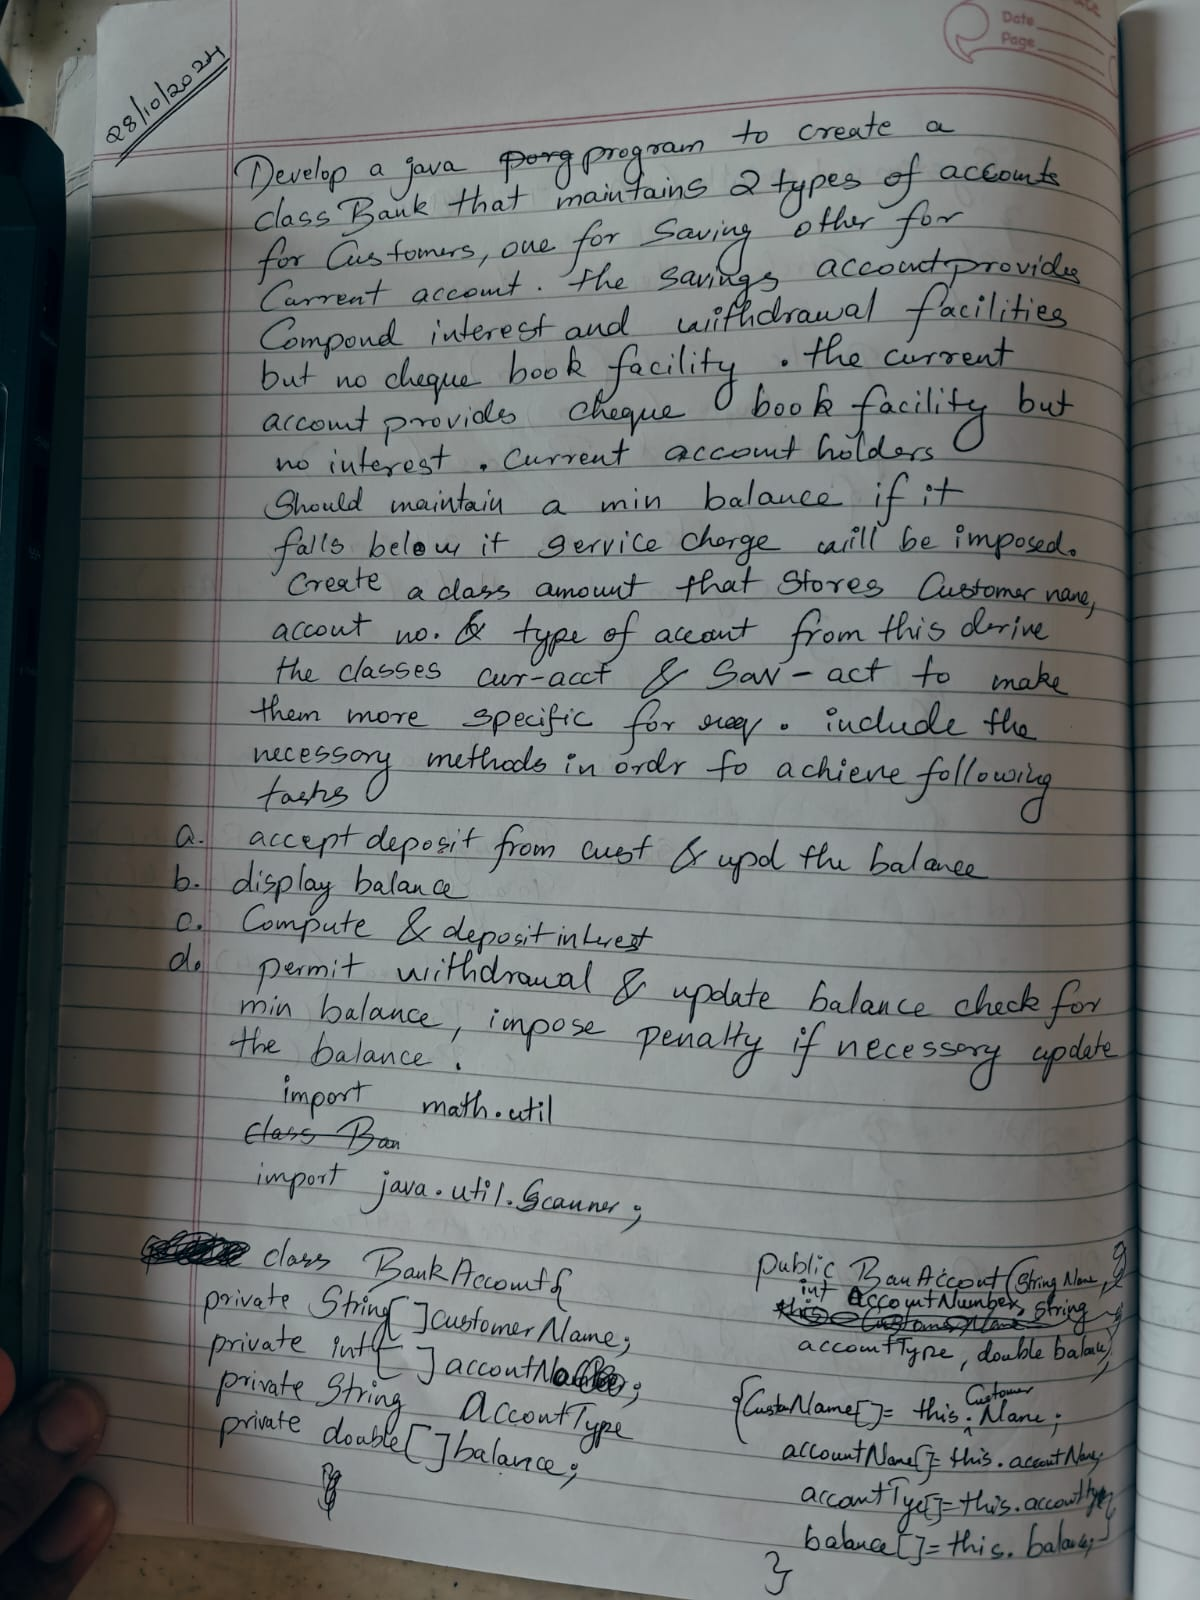 Date
Page
28/10/2024
Develop a java porg program to create a
class Bank that maintains 2 types of accounts
for Customers, one for Saving other for
Current account. the savings account provides
Compond interest and withdrawal facilities
but no cheque book facility. the current
account provides cheque book facility but
no interest. Current account holders
Should maintain a min balance if it
falls below it service charge will be imposed.
Create a class amount that Stores Customer name,
accout no. & type of account from this derive
the classes cur-acct & Sav-act to make
them more specific for req. include the
necessary methods in ordr to achieve following
tasks
a. accept deposit from cust & upd the balance
b. display balance
c. Compute & deposit interest
d. permit withdrawal & update balance check for
min balance, impose penalty if necessary update
the balance.
import math.util
class Ban
import java.util.Scanner;
class BankAccount{
private String[]customerName;
private int[]
private String AccontType
private double[]balance;
}
public BanAccout(String Name,
int accoutNumber, String
accountType, double balance)
{CustoName[]= this.Customer Name;
accountName[]= this.accoutName;
accountTye[]=this.accountType
balance[]=this.balance;
}